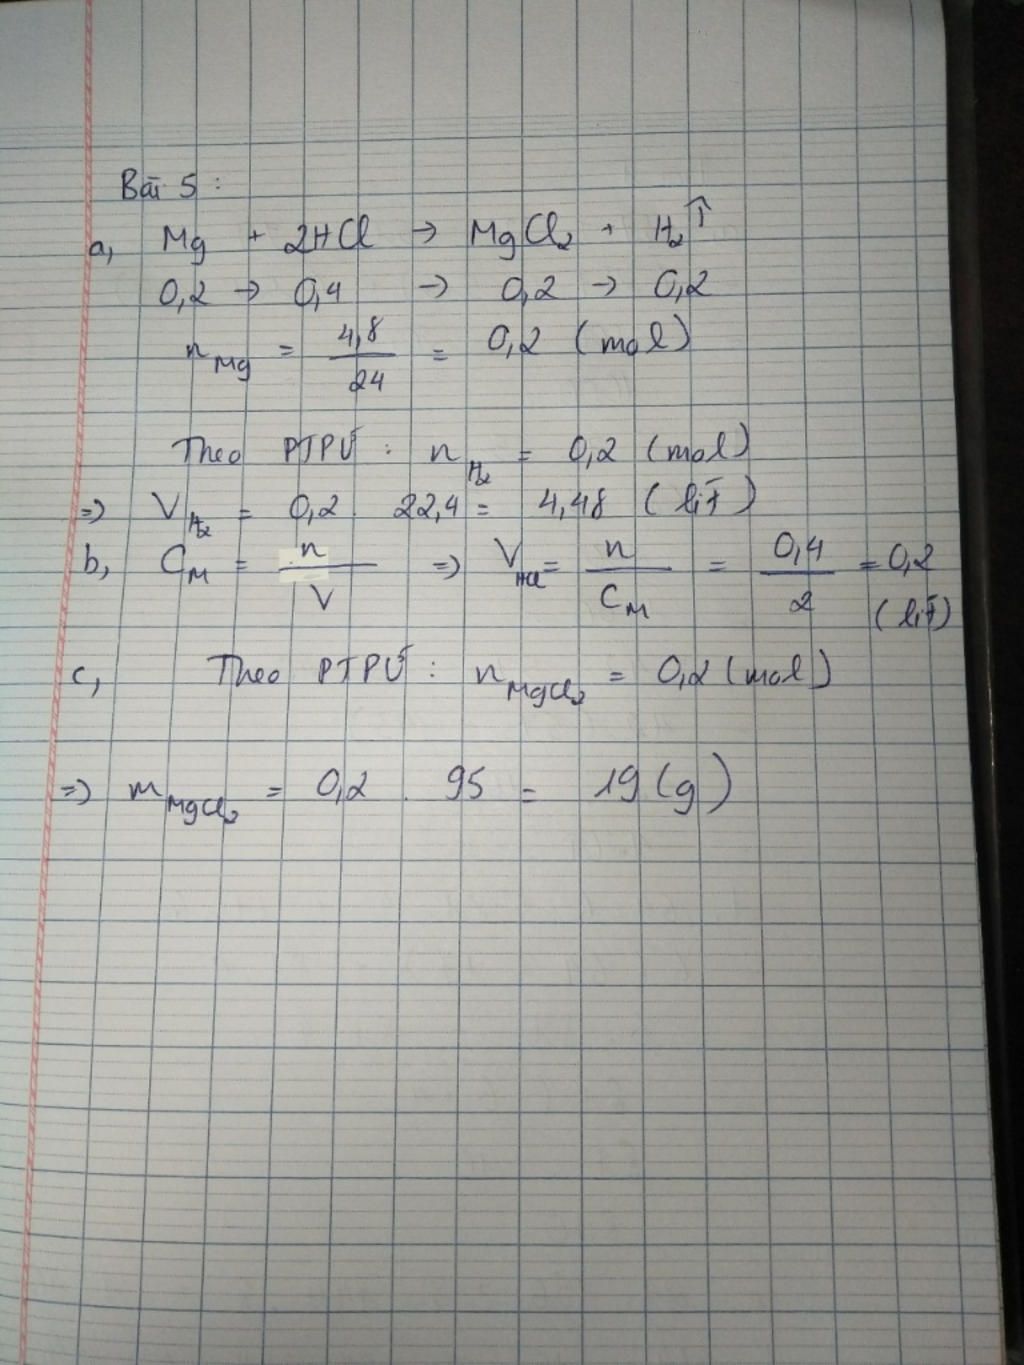 Bài 5 :
a, Mg + 2HCl → MgCl₂ + H₂↑
0,2 → 0,4 → 0,2 → 0,2
n Mg = 4,8 / 24 = 0,2 (mol)
Theo PTPƯ : n H₂ = 0,2 (mol)
=> V H₂ = 0,2 . 22,4 = 4,48 (lít)
b, C M = n / V => V HCl = n / C M = 0,4 / 2 = 0,2 (lít)
c, Theo PTPƯ : n MgCl₂ = 0,2 (mol)
=> m MgCl₂ = 0,2 . 95 = 19 (g)